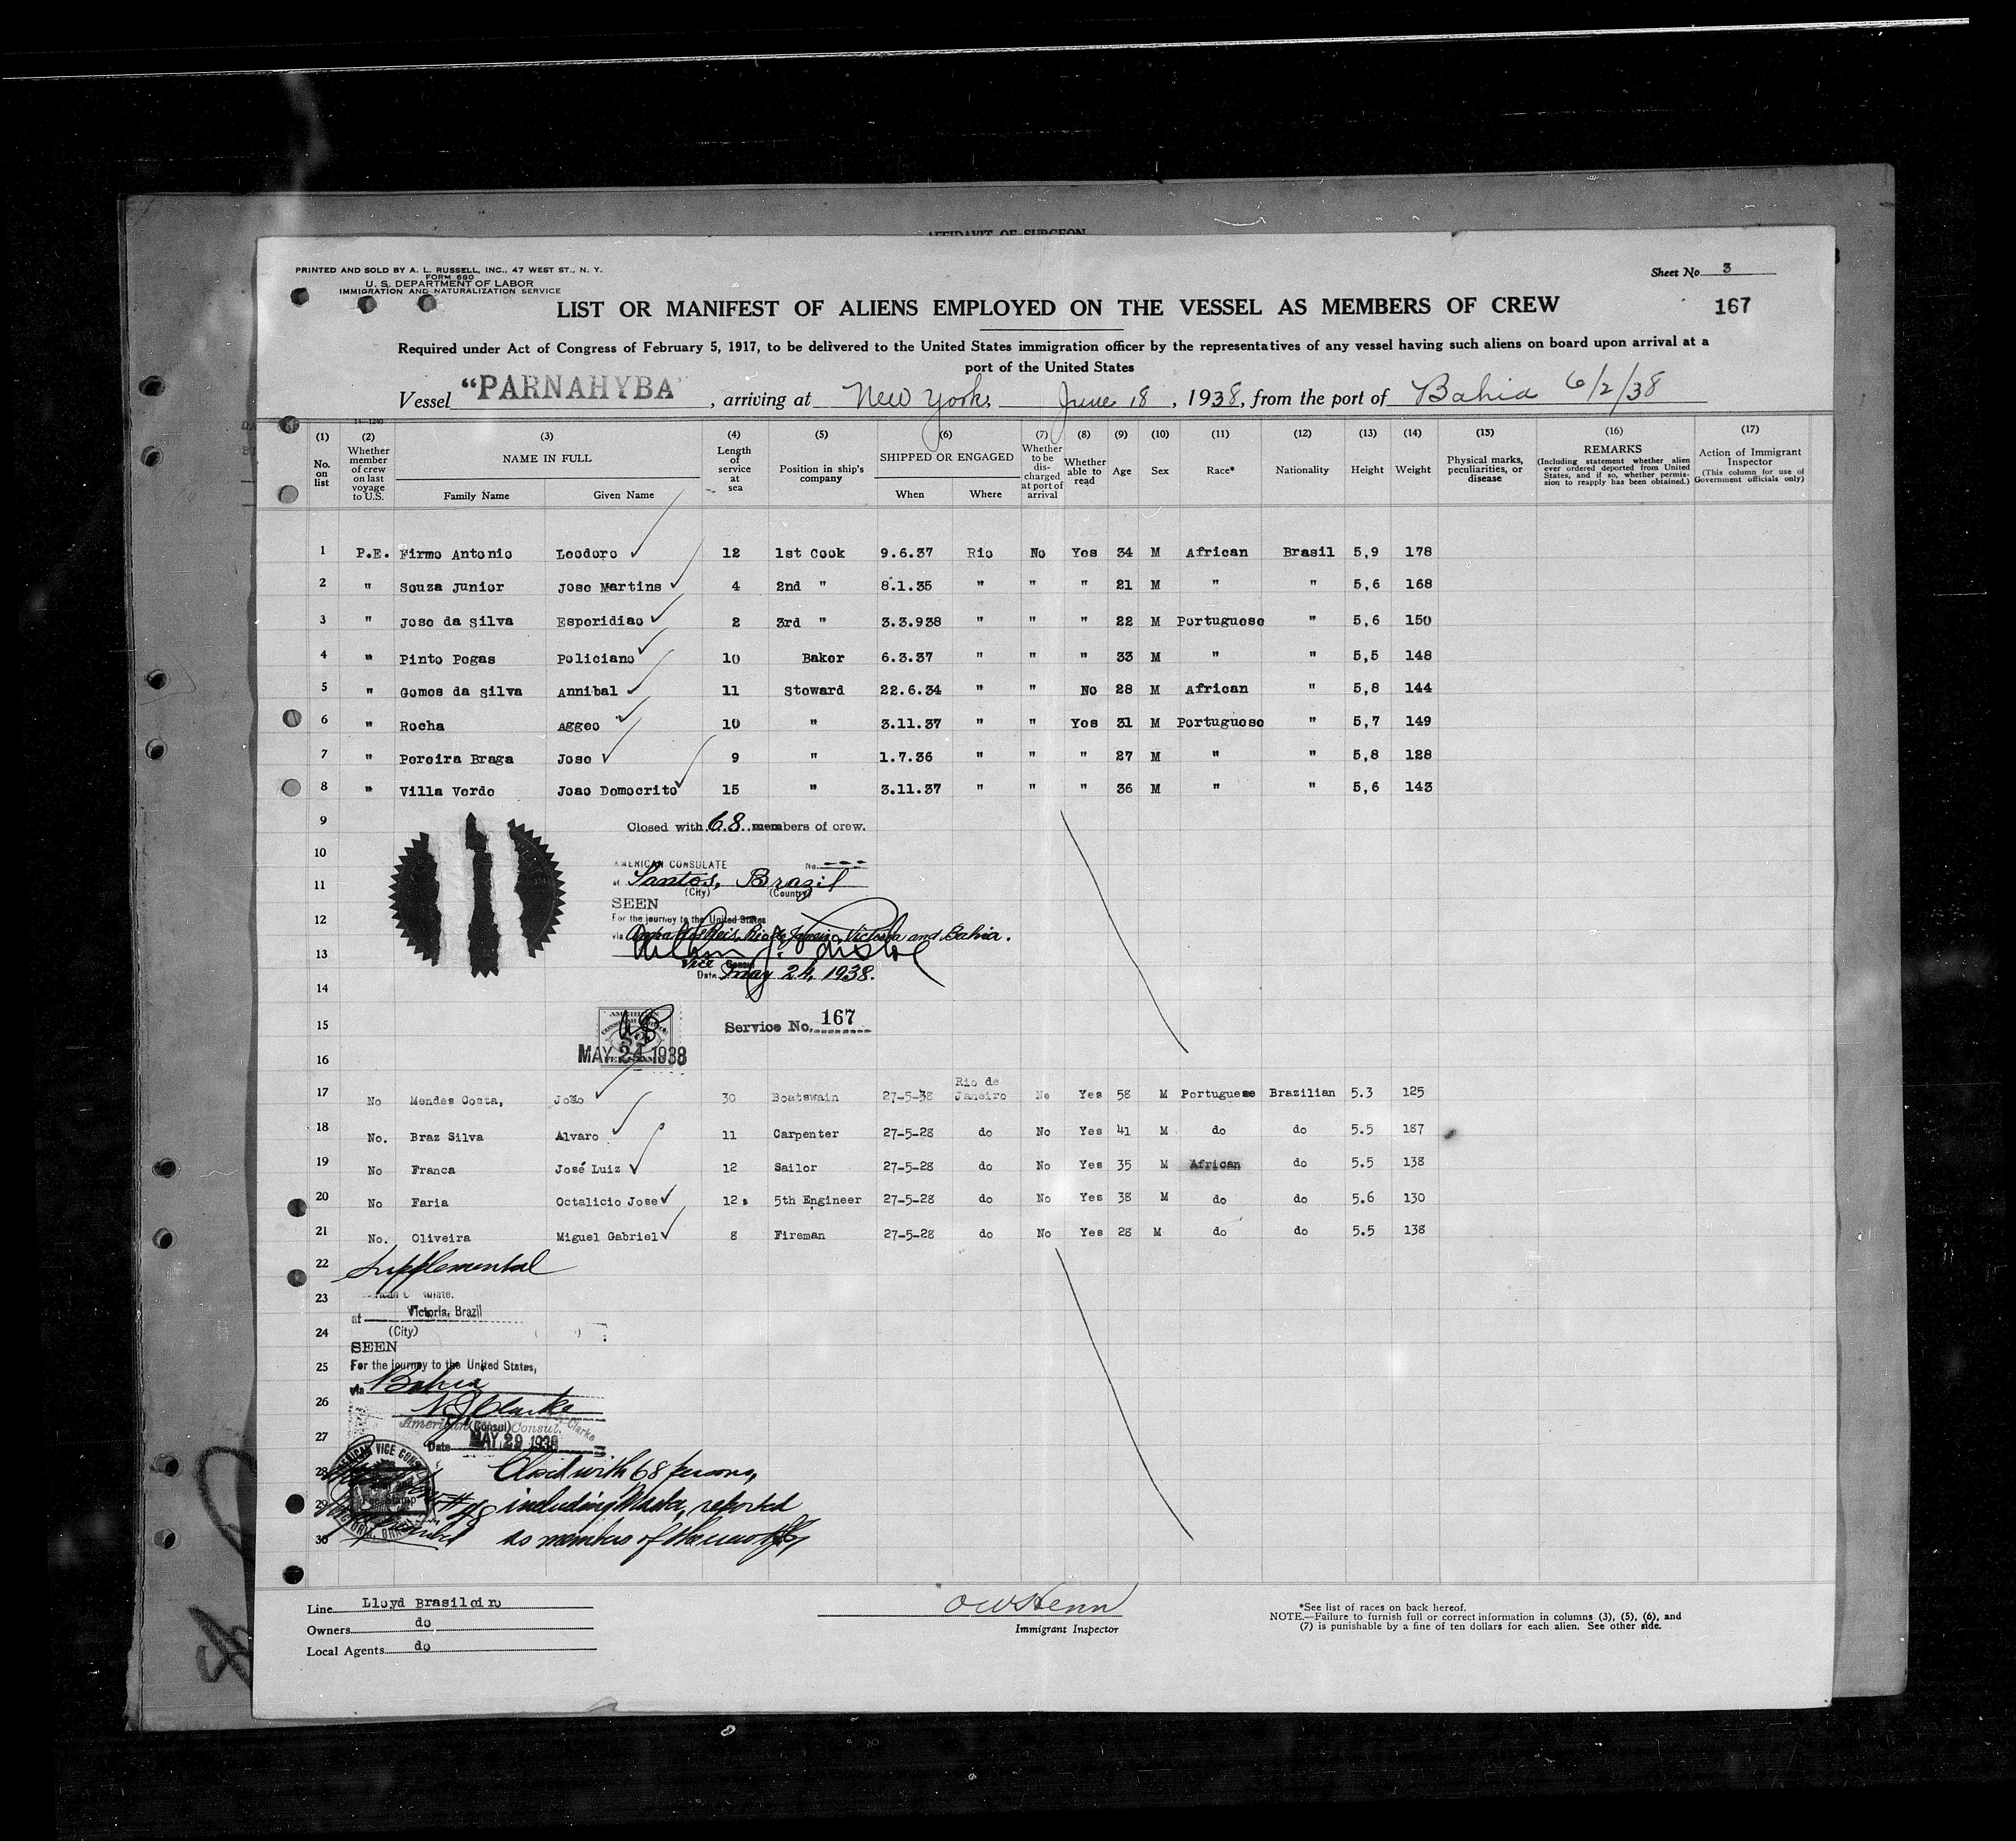 AFFIDAVIT OF SURGEON
PRINTED AND SOLD BY A. L. RUSSELL, INC., 47 WEST ST., N. Y.
FORM 680
U. S. DEPARTMENT OF LABOR
IMMIGRATION AND NATURALIZATION SERVICE
Sheet No. 3
LIST OR MANIFEST OF ALIENS EMPLOYED ON THE VESSEL AS MEMBERS OF CREW
167
Required under Act of Congress of February 5, 1917, to be delivered to the United States immigration officer by the representatives of any vessel having such aliens on board upon arrival at a
port of the United States
Vessel "PARNAHYBA", arriving at New York, June 18, 1938, from the port of Bahia 6/2/38
14-1240
(1) (2) (3) (4) (5) (6) (7) (8) (9) (10) (11) (12) (13) (14) (15) (16) (17)
No. on list
Whether member of crew on last voyage to U.S.
NAME IN FULL
Family Name Given Name
Length of service at sea
Position in ship's company
SHIPPED OR ENGAGED
When Where
Whether to be discharged at port of arrival
Whether able to read
Age
Sex
Race*
Nationality
Height
Weight
Physical marks, peculiarities, or disease
REMARKS
(Including statement whether alien ever ordered deported from United States, and if so, whether permission to reapply has been obtained.)
Action of Immigrant Inspector
(This column for use of Government officials only)
1 P.E. Firmo Antonio Leodoro 12 1st Cook 9.6.37 Rio No Yes 34 M African Brasil 5,9 178
2 " Souza Junior Jose Martins 4 2nd " 8.1.35 " " " 21 M " " 5,6 168
3 " Jose da Silva Esperidiao 2 3rd " 3.3.938 " " " 22 M Portuguese " 5,6 150
4 " Pinto Pegas Policiano 10 Baker 6.3.37 " " " 33 M " " 5,5 148
5 " Gomes da Silva Annibal 11 Steward 22.6.34 " " No 28 M African " 5,8 144
6 " Rocha Aggeo 10 " 3.11.37 " " Yes 31 M Portuguese " 5,7 149
7 " Pereira Braga Jose 9 " 1.7.36 " " " 27 M " " 5,8 128
8 " Villa Verde Joao Democrito 15 " 3.11.37 " " " 36 M " " 5,6 143
9 Closed with 68 members of crew.
10 AMERICAN CONSULATE No. ---
11 at Santos, Brazil
(City) (Country)
SEEN
12 For the journey to the United States
via Angra dos Reis, Rio de Janeiro, Victoria and Bahia.
13
Vice Consul
Date May 24, 1938.
14
15 Service No. 167
16 MAY 24 1938
17 No Mendes Costa, João 30 Boatswain 27-5-38 Rio de Janeiro No Yes 58 M Portuguese Brazilian 5.3 125
18 No. Braz Silva Alvaro 11 Carpenter 27-5-28 do No Yes 41 M do do 5.5 187
19 No Franca José Luiz 12 Sailor 27-5-28 do No Yes 35 M African do 5.5 138
20 No Faria Octalicio Jose 12. 5th Engineer 27-5-28 do No Yes 38 M do do 5.6 130
21 No. Oliveira Miguel Gabriel 8 Fireman 27-5-28 do No Yes 28 M do do 5.5 138
22 Supplemental
23
at Victoria, Brazil
24 (City)
SEEN
25 For the journey to the United States,
via Bahia
26 Clarke
American (Consul) Consul.
27 Date MAY 29 1938
28 Closed with 68 persons,
29 including Master, reported
30 as members of the crew
Line Lloyd Brasileiro
Owners do
Local Agents do
Immigrant Inspector
*See list of races on back hereof.
NOTE.—Failure to furnish full or correct information in columns (3), (5), (6), and
(7) is punishable by a fine of ten dollars for each alien. See other side.